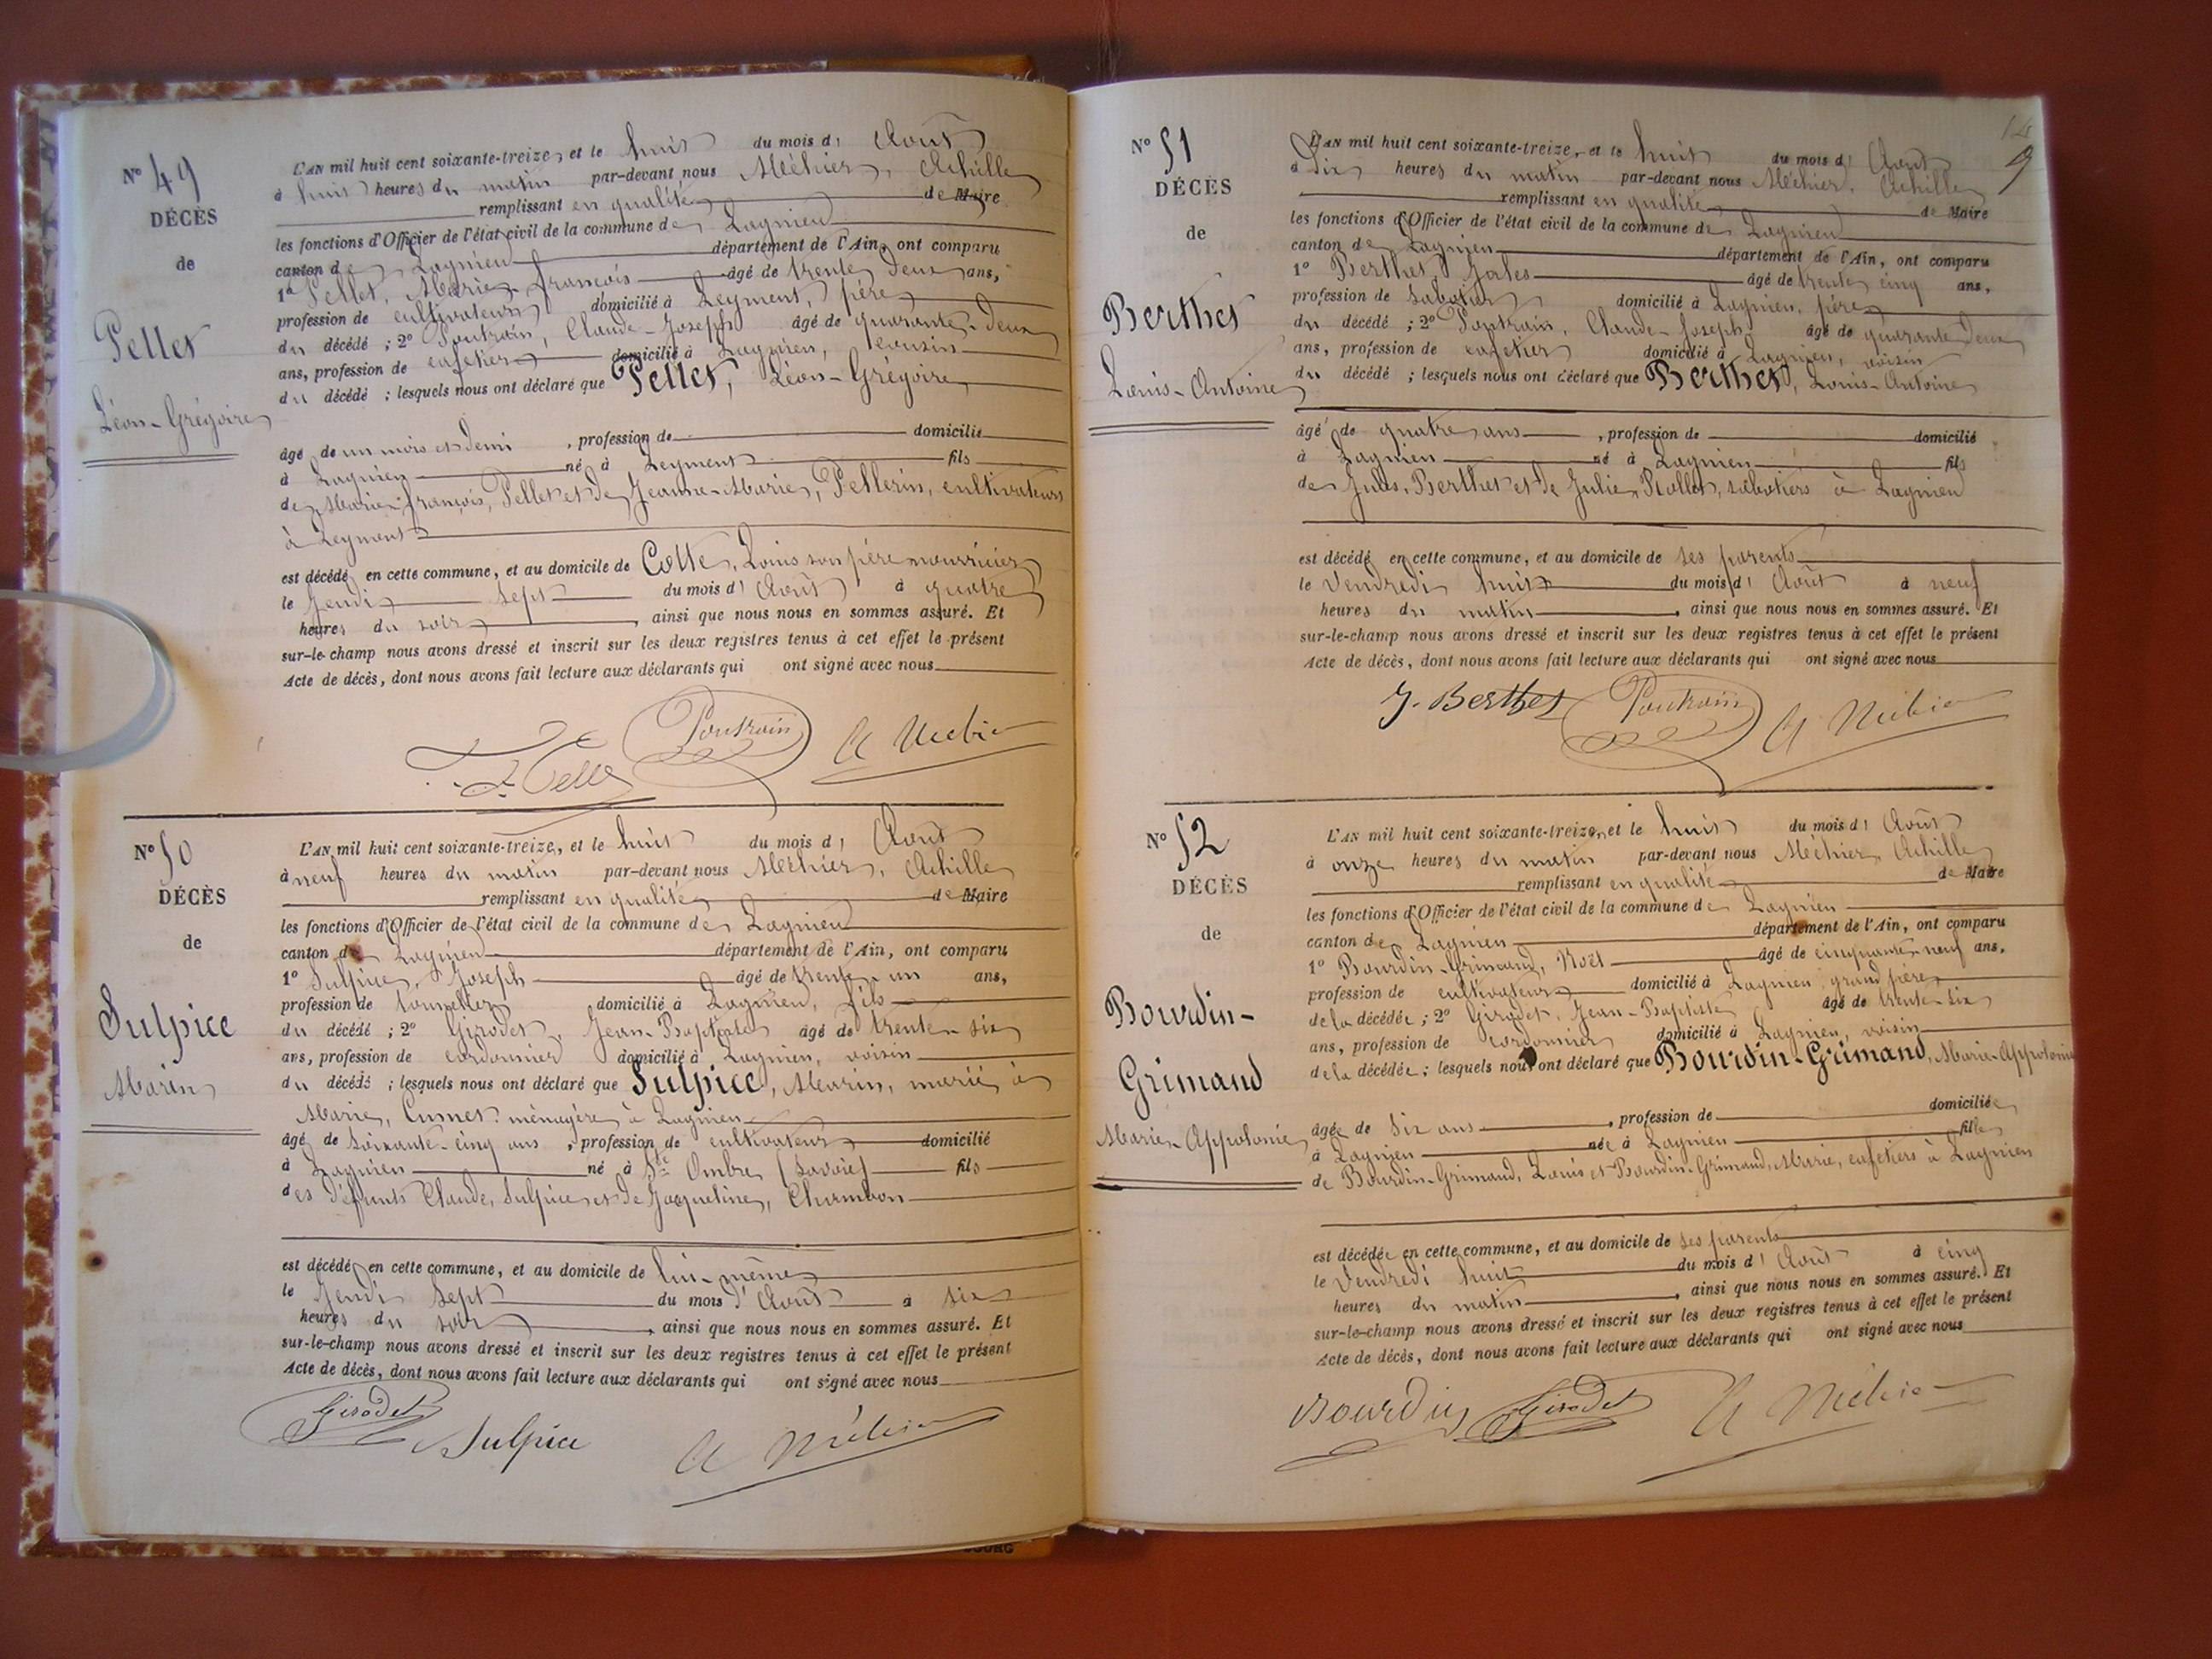 N° 49
DÉCÈS
de
Pellet
Léon-Grégoire
L'AN mil huit cent soixante-treize, et le huit du mois d' Août
à huit heures du matin par-devant nous Méhier, Achille
remplissant en qualité de Maire
les fonctions d'Officier de l'état civil de la commune de Lagnieu
canton de Lagnieu département de l'Ain, ont comparu
1° Pellet, Marie-françois âgé de trente deux ans,
profession de cultivateur domicilié à Leyment, père
du décédé ; 2° Poutrain, Claude-Joseph âgé de quarante-deux
ans, profession de cafetier domicilié à Lagnieu, voisin
du décédé ; lesquels nous ont déclaré que Pellet, Léon-Grégoire
âgé de un mois et demi , profession de domicilié
à Lagnieu né à Leyment fils
de Marie-françois, Pellet et de Jeanne-Marie, Pellerin, cultivateurs
à Leyment
est décédé en cette commune, et au domicile de Cotte, Louis son père nourricier
le Jeudi sept du mois d' Août à quatre
heures du soir , ainsi que nous nous en sommes assuré. Et
sur-le-champ nous avons dressé et inscrit sur les deux registres tenus à cet effet le présent
Acte de décès, dont nous avons fait lecture aux déclarants qui ont signé avec nous
Poutrain
N° 50
DÉCÈS
de
Sulpice
Marin
L'AN mil huit cent soixante-treize, et le huit du mois d' Août
à neuf heures du matin par-devant nous Méhier, Achille
remplissant en qualité de Maire
les fonctions d'Officier de l'état civil de la commune de Lagnieu
canton de Lagnieu département de l'Ain, ont comparu
1° Sulpice, Joseph âgé de trente-un ans,
profession de domicilié à Lagnieu, fils
du décédé ; 2° Girodet, Jean-Baptiste âgé de trente-six
ans, profession de cordonnier domicilié à Lagnieu, voisin
du décédé ; lesquels nous ont déclaré que Sulpice, Marin, marié à
Marie, Cunet ménagère à Lagnieu
âgé de soixante-cinq ans , profession de cultivateur domicilié
à Lagnieu né à Ste Ombre (Savoie) fils
des défunts Claude, Sulpice et de Jacqueline,
est décédé en cette commune, et au domicile de lui-même
le Jeudi sept du mois d' Août à six
heures du soir , ainsi que nous nous en sommes assuré. Et
sur-le-champ nous avons dressé et inscrit sur les deux registres tenus à cet effet le présent
Acte de décès, dont nous avons fait lecture aux déclarants qui ont signé avec nous
Girodet Sulpice A Méhier
9
N° 51
DÉCÈS
de
Berthet
Louis-Antoine
L'AN mil huit cent soixante-treize, et le huit du mois d' Août
à Dix heures du matin par-devant nous Méhier, Achille
remplissant en qualité de Maire
les fonctions d'Officier de l'état civil de la commune de Lagnieu
canton de Lagnieu département de l'Ain, ont comparu
1° Berthet, Jules âgé de trente cinq ans,
profession de sabotier domicilié à Lagnieu, père
du décédé ; 2° Poutrain, Claude-Joseph âgé de quarante deux
ans, profession de cafetier domicilié à Lagnieu, voisin
du décédé ; lesquels nous ont déclaré que Berthet, Louis-Antoine
âgé de quatre ans , profession de domicilié
à Lagnieu né à Lagnieu fils
de Jules, Berthet et de Julie, Rollet, sabotiers à Lagnieu
est décédé en cette commune, et au domicile de ses parents
le Vendredi huit du mois d' Août à neuf
heures du matin , ainsi que nous nous en sommes assuré. Et
sur-le-champ nous avons dressé et inscrit sur les deux registres tenus à cet effet le présent
Acte de décès, dont nous avons fait lecture aux déclarants qui ont signé avec nous
J. Berthet Poutrain A Méhier
N° 52
DÉCÈS
de
Bourdin-
Grimaud
Marie-Appolonie
L'AN mil huit cent soixante-treize, et le huit du mois d' Août
à onze heures du matin par-devant nous Méhier, Achille
remplissant en qualité de Maire
les fonctions d'Officier de l'état civil de la commune de Lagnieu
canton de Lagnieu département de l'Ain, ont comparu
1° Bourdin-Grimaud, Noël âgé de cinquante-neuf ans,
profession de cultivateur domicilié à Lagnieu grand père
de la décédée ; 2° Girodet, Jean-Baptiste âgé de trente-six
ans, profession de cordonnier domicilié à Lagnieu, voisin
de la décédée ; lesquels nous ont déclaré que Bourdin-Grimaud, Marie-Appolonie
âgée de six ans , profession de domiciliée
à Lagnieu née à Lagnieu fille
de Bourdin-Grimaud, Louis et Bourdin-Grimaud, Marie, cafetiers à Lagnieu
est décédée en cette commune, et au domicile de ses parents
le Vendredi huit du mois d' Août à cinq
heures du matin , ainsi que nous nous en sommes assuré. Et
sur-le-champ nous avons dressé et inscrit sur les deux registres tenus à cet effet le présent
Acte de décès, dont nous avons fait lecture aux déclarants qui ont signé avec nous
Bourdin Girodet A Méhier